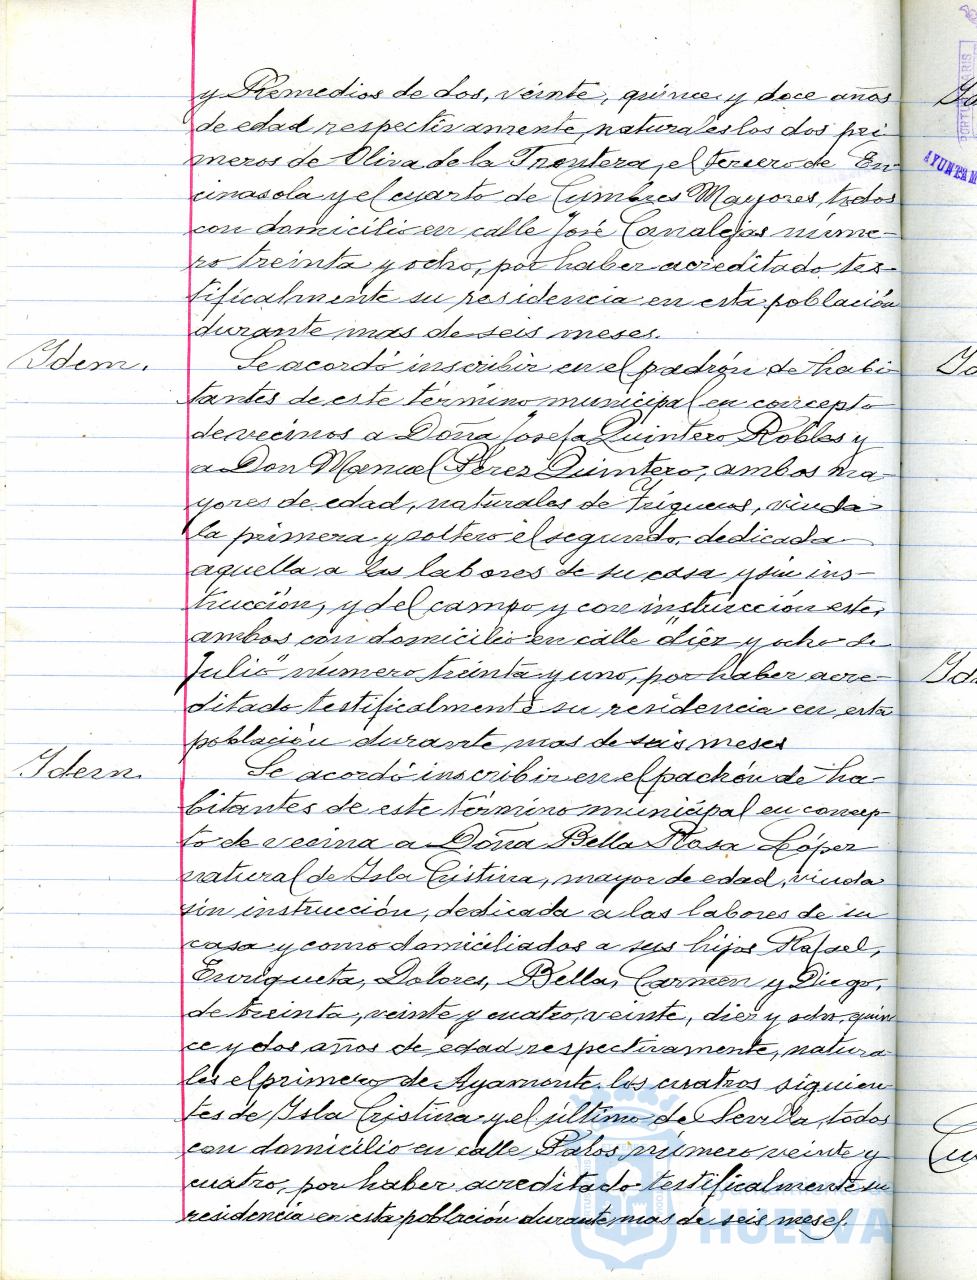 y Remedios de dos, veinte, quince y doce años
de edad respectivamente, naturales los dos pri-
meros de Oliva de la Frontera, el tercero de En-
cinasola y el cuarto de Cumbres Mayores, todos
con domicilio en calle José Canalejas núme-
ro treinta y ocho, por haber acreditado tes-
tifícalmente su residencia en esta población
durante mas de seis meses.
Idem. Se acordó inscribir en el padrón de habi-
tantes de este término municipal en concepto
de vecinos a Doña Josefa Quintero Robles y
a Don Manuel Pérez Quintero, ambos ma-
yores de edad, naturales de Trigueros, viuda
la primera y soltero el segundo, dedicada
aquella a las labores de su casa y sin ins-
trucción, y del campo y con instrucción este,
ambos con domicilio en calle "diez y ocho de
Julio" número treinta y uno, por haber acre-
ditado testificalmente su residencia en esta
población durante mas de seis meses
Idem. Se acordó inscribir en el padrón de ha-
bitantes de este término municipal en concep-
to de vecina a Doña Bella Rosa López
natural de Isla Cristina, mayor de edad, viuda
sin instrucción, dedicada a las labores de su
casa y como domiciliados a sus hijos Rafael,
Enriqueta, Dolores, Bella, Carmen y Diego,
de treinta, veinte y cuatro, veinte, diez y ocho, quin-
ce y dos años de edad respectivamente, natura-
les el primero de Ayamonte, los cuatros siguien-
tes de Isla Cristina y el último de Sevilla, todos
con domicilio en calle Palos número veinte y
cuatro, por haber acreditado testificalmente su
residencia en esta población durante mas de seis meses.
Ayuntamiento de
HUELVA